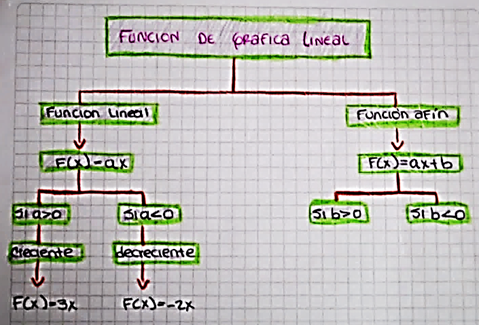 FUNCION DE GRAFICA LINEAL
Funcion Lineal
Función afín
F(x)=ax
F(x)=ax+b
Si a>0
Si a<0
Si b>0
Si b<0
creciente
decreciente
F(x)=3x
F(x)=-2x